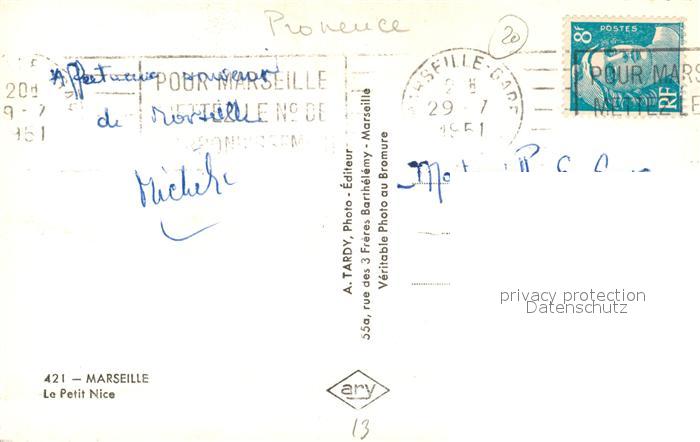 Provence
20
8F
POSTES
RF
MARSEILLE-GARE
29-7
1951
POUR MARSEILLE
METTEZ LE No DE
POUR MARS
METTEZ LE
de Marseille
Michèle
A. TARDY, Photo - Éditeur
55a, rue des 3 Frères Barthélémy - Marseille
Véritable Photo au Bromure
privacy protection
Datenschutz
421 — MARSEILLE
Le Petit Nice
ary
13